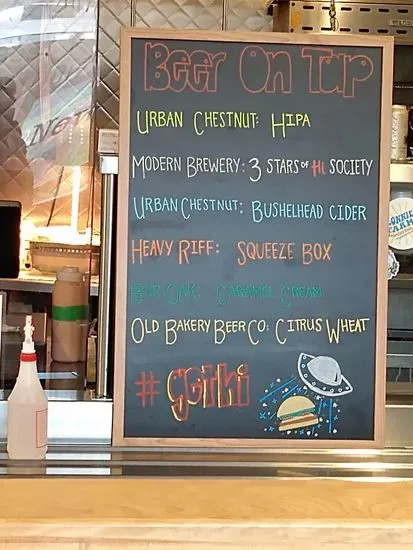 Beer On Tap
URBAN CHESTNUT: HIPA
MODERN BREWERY: 3 STARS OF Hi SOCIETY
URBAN CHESTNUT: BUSHELHEAD CIDER
HEAVY RIFF: SQUEEZE BOX
CARAMEL CREAM
OLD BAKERY BEER CO: CITRUS WHEAT
#gethi